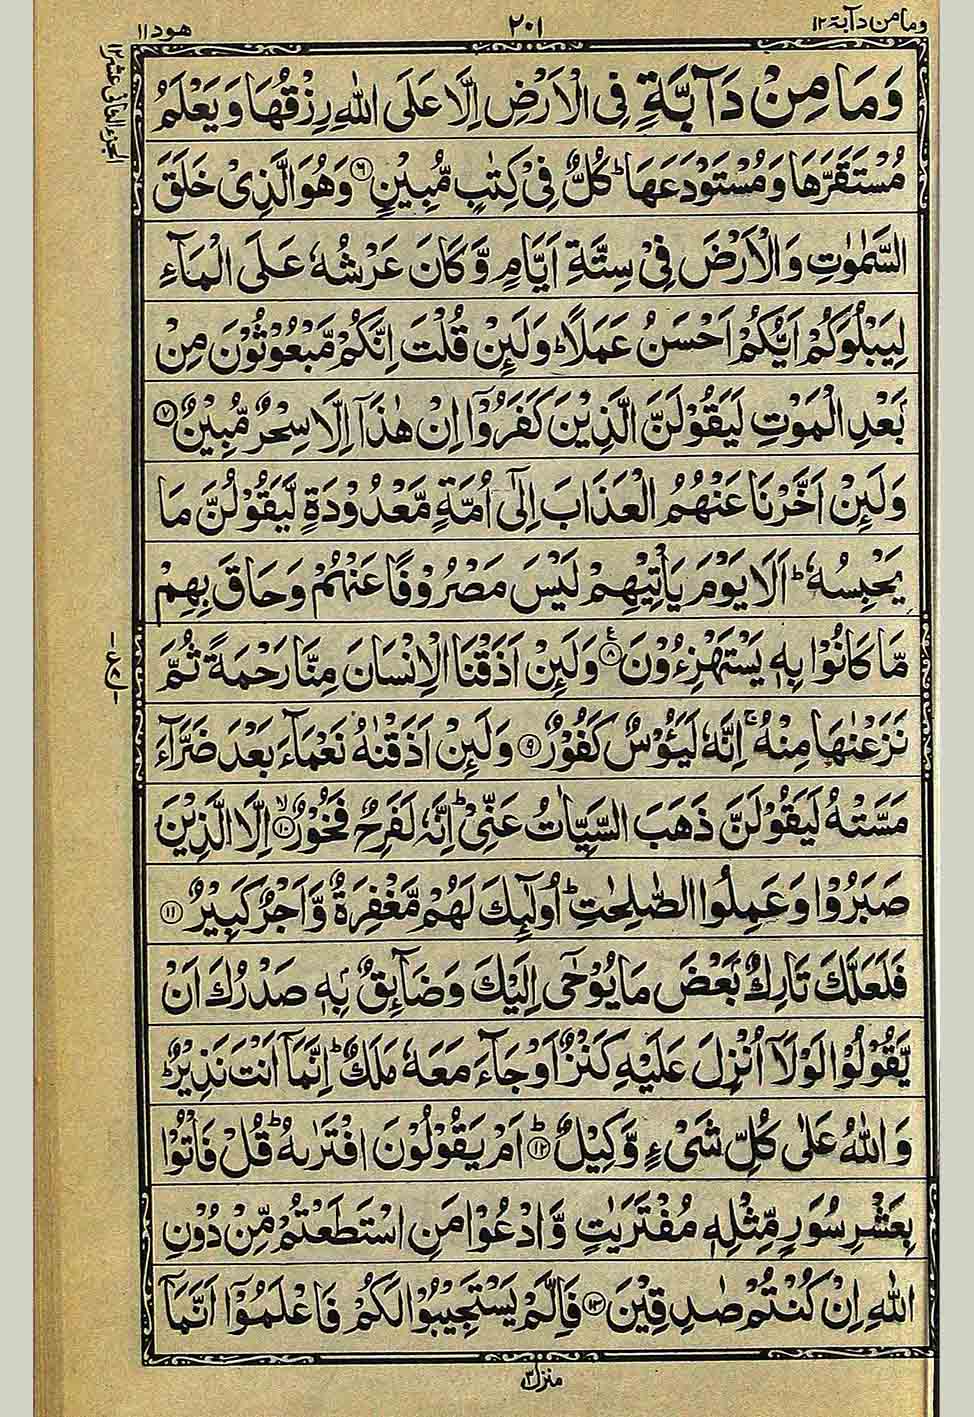 وما من دآبة ١٢
٢٠١
هود ١١
الجزء الثانی عشر ١٢
وَمَا مِنْ دَآبَّةٍ فِی الْاَرْضِ اِلَّا عَلَی اللّٰهِ رِزْقُهَا وَیَعْلَمُ
مُسْتَقَرَّهَا وَمُسْتَوْدَعَهَا ؕ كُلٌّ فِیْ كِتٰبٍ مُّبِیْنٍ ۝۶ وَهُوَ الَّذِیْ خَلَقَ
السَّمٰوٰتِ وَالْاَرْضَ فِیْ سِتَّةِ اَیَّامٍ وَّكَانَ عَرْشُهٗ عَلَی الْمَآءِ
لِیَبْلُوَكُمْ اَیُّكُمْ اَحْسَنُ عَمَلًا ؕ وَلَىِٕنْ قُلْتَ اِنَّكُمْ مَّبْعُوْثُوْنَ مِنْ
بَعْدِ الْمَوْتِ لَیَقُوْلَنَّ الَّذِیْنَ كَفَرُوْۤا اِنْ هٰذَاۤ اِلَّا سِحْرٌ مُّبِیْنٌ ۝۷
وَلَىِٕنْ اَخَّرْنَا عَنْهُمُ الْعَذَابَ اِلٰۤی اُمَّةٍ مَّعْدُوْدَةٍ لَّیَقُوْلُنَّ مَا
یَحْبِسُهٗ ؕ اَلَا یَوْمَ یَاْتِیْهِمْ لَیْسَ مَصْرُوْفًا عَنْهُمْ وَحَاقَ بِهِمْ
مَّا كَانُوْا بِهٖ یَسْتَهْزِءُوْنَ ۝۸ۧ وَلَىِٕنْ اَذَقْنَا الْاِنْسَانَ مِنَّا رَحْمَةً ثُمَّ
نَزَعْنٰهَا مِنْهُ ۚ اِنَّهٗ لَیَـُٔوْسٌ كَفُوْرٌ ۝۹ وَلَىِٕنْ اَذَقْنٰهُ نَعْمَآءَ بَعْدَ ضَرَّآءَ
مَسَّتْهُ لَیَقُوْلَنَّ ذَهَبَ السَّیِّاٰتُ عَنِّیْ ؕ اِنَّهٗ لَفَرِحٌ فَخُوْرٌ ۝۱۰ۙ اِلَّا الَّذِیْنَ
صَبَرُوْا وَعَمِلُوا الصّٰلِحٰتِ ؕ اُولٰٓىِٕكَ لَهُمْ مَّغْفِرَةٌ وَّاَجْرٌ كَبِیْرٌ ۝۱۱
فَلَعَلَّكَ تَارِكٌۢ بَعْضَ مَا یُوْحٰۤی اِلَیْكَ وَضَآىِٕقٌۢ بِهٖ صَدْرُكَ اَنْ
یَّقُوْلُوْا لَوْلَاۤ اُنْزِلَ عَلَیْهِ كَنْزٌ اَوْ جَآءَ مَعَهٗ مَلَكٌ ؕ اِنَّمَاۤ اَنْتَ نَذِیْرٌ ؕ
وَاللّٰهُ عَلٰی كُلِّ شَیْءٍ وَّكِیْلٌ ۝۱۲ؕ اَمْ یَقُوْلُوْنَ افْتَرٰىهُ ؕ قُلْ فَاْتُوْا
بِعَشْرِ سُوَرٍ مِّثْلِهٖ مُفْتَرَیٰتٍ وَّادْعُوْا مَنِ اسْتَطَعْتُمْ مِّنْ دُوْنِ
اللّٰهِ اِنْ كُنْتُمْ صٰدِقِیْنَ ۝۱۳ فَاِلَّمْ یَسْتَجِیْبُوْا لَكُمْ فَاعْلَمُوْۤا اَنَّمَاۤ
منزل ٣